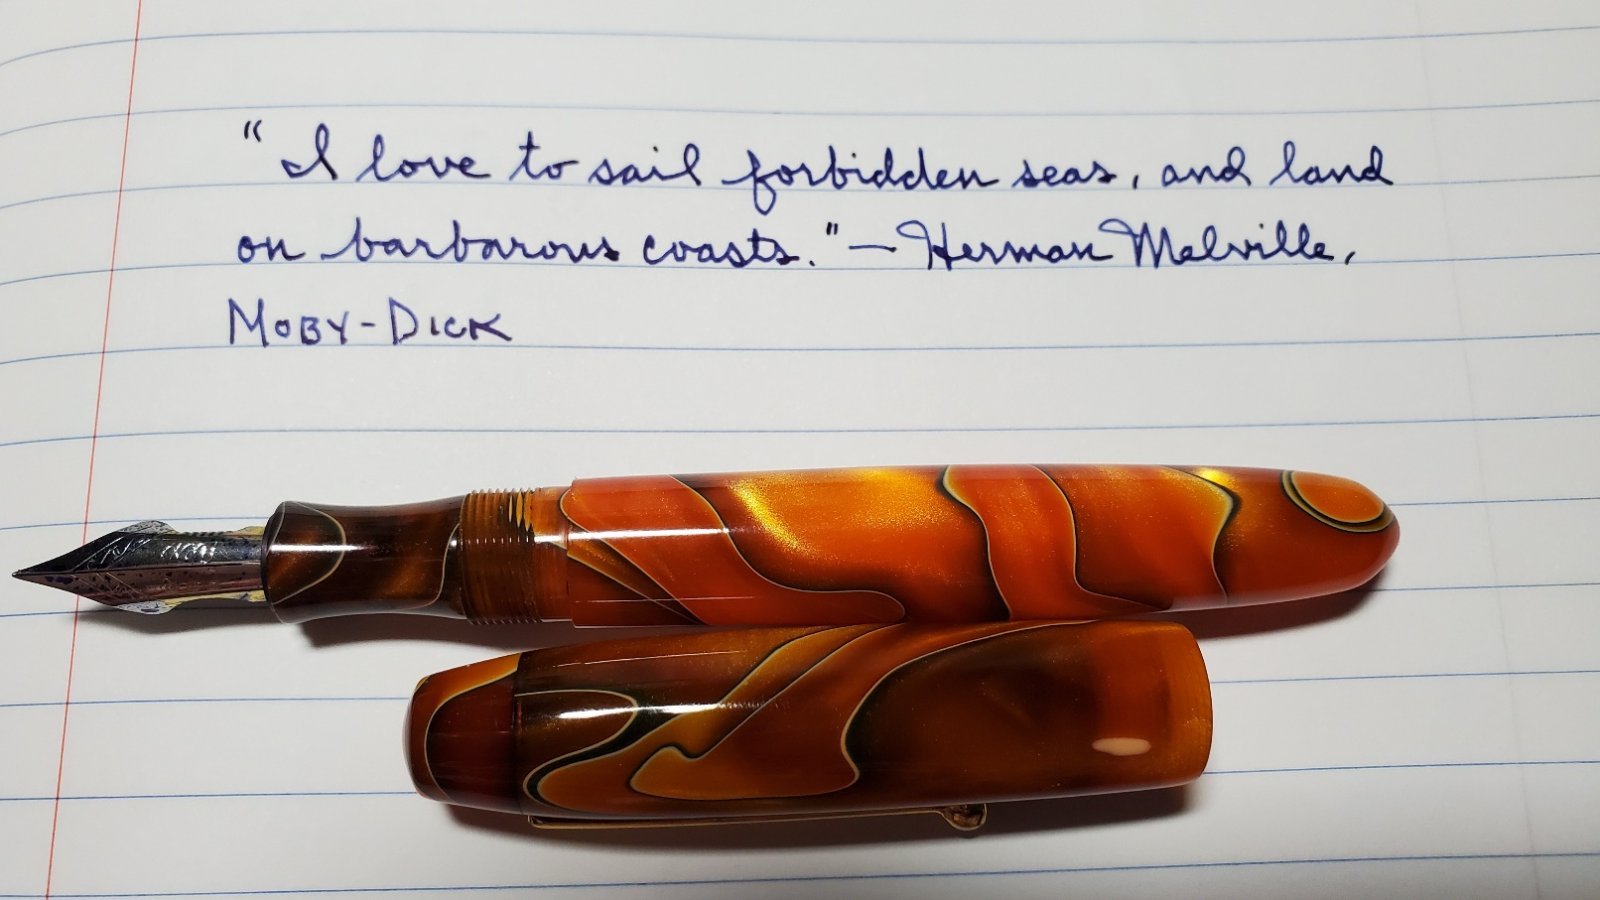 "I love to sail forbidden seas, and land
on barbarous coasts." — Herman Melville,
MOBY-DICK